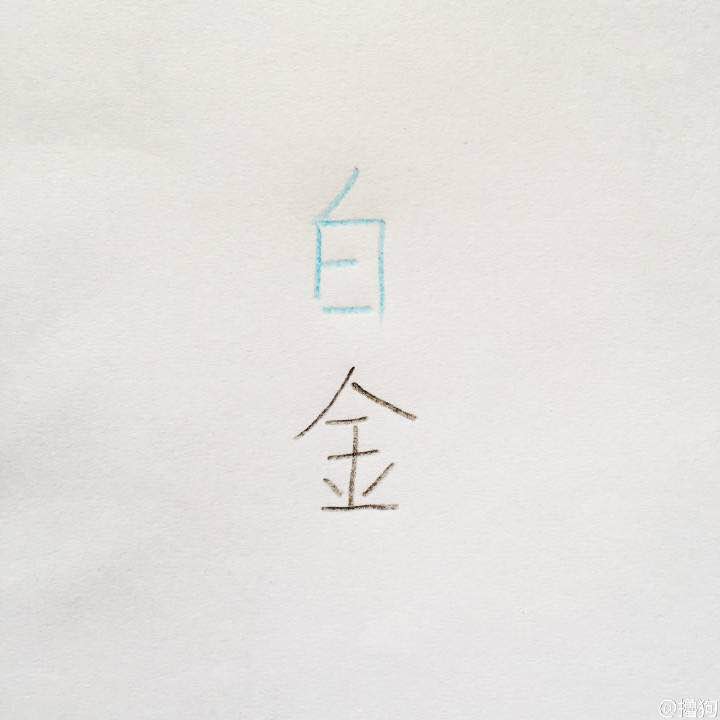 白
金
@撸狗